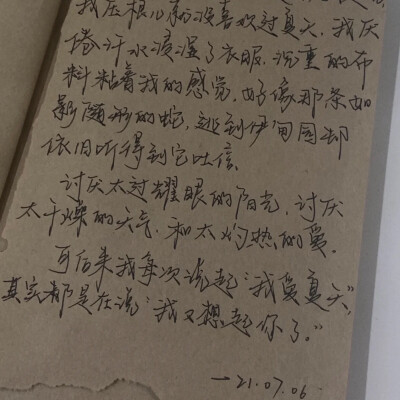 我压根儿就没喜欢过夏天。我厌
倦汗水浸湿了衣服，沉重的布
料粘着我的感觉，好像那条如
影随形的蛇，逃到伊甸园却
依旧听得到它吐信。
讨厌太过耀眼的阳光，讨厌
太干燥的天气，和太灼热的夏。
可后来我每次说起“我爱夏天”，
其实都是在说“我又想起你了。”
—21.07.06